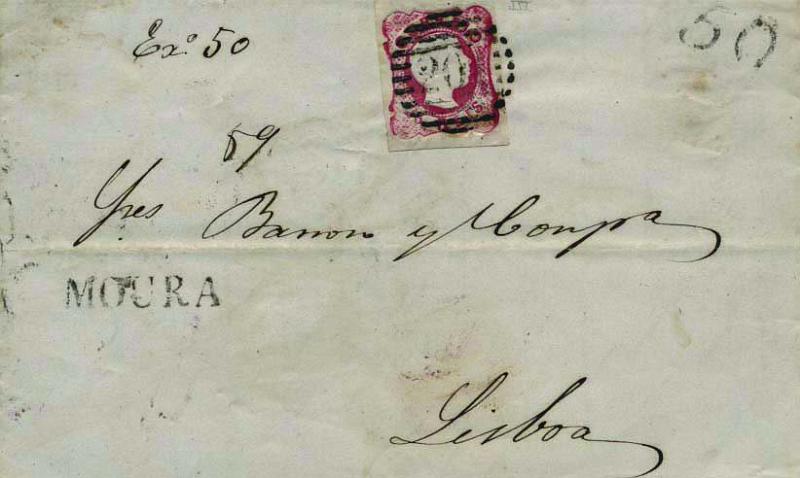 Exo 50
50
59
Sres Barron y Compa
MOURA
Lisboa